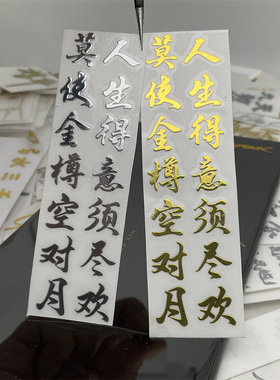 人生得意须尽欢
莫使金樽空对月
人生得意须尽欢
莫使金樽空对月